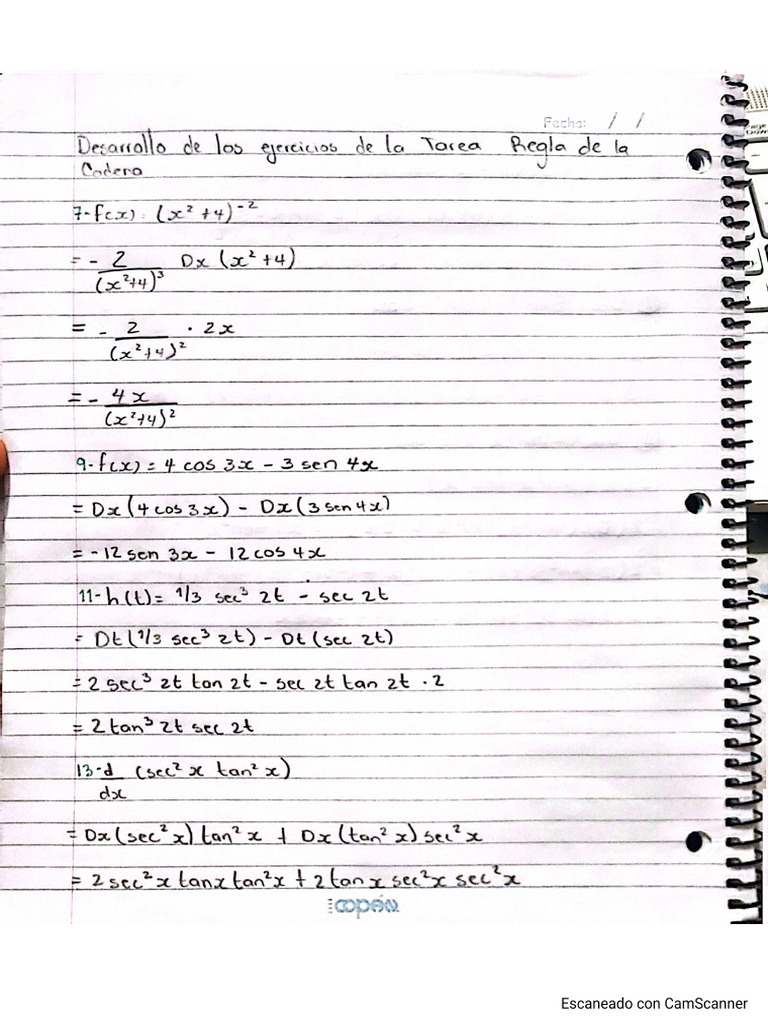 Fecha: / /
Desarrollo de los ejercicios de la Tarea Regla de la
Cadena
7- f(x): (x² + 4)⁻²
= - 2/(x²+4)³ Dx (x² + 4)
= - 2/(x²+4)² · 2x
= - 4x/(x²+4)²
9- f(x) = 4 cos 3x - 3 sen 4x
= Dx (4 cos 3x) - Dx (3 sen 4x)
= -12 sen 3x - 12 cos 4x
11- h(t) = 1/3 sec³ 2t - sec 2t
= Dt (1/3 sec³ 2t) - Dt (sec 2t)
= 2 sec³ 2t tan 2t - sec 2t tan 2t · 2
= 2 tan³ 2t sec 2t
13- d/dx (sec² x tan² x)
= Dx (sec² x) tan² x + Dx (tan² x) sec² x
= 2 sec² x tan x tan² x + 2 tan x sec² x sec² x
copan
Escaneado con CamScanner